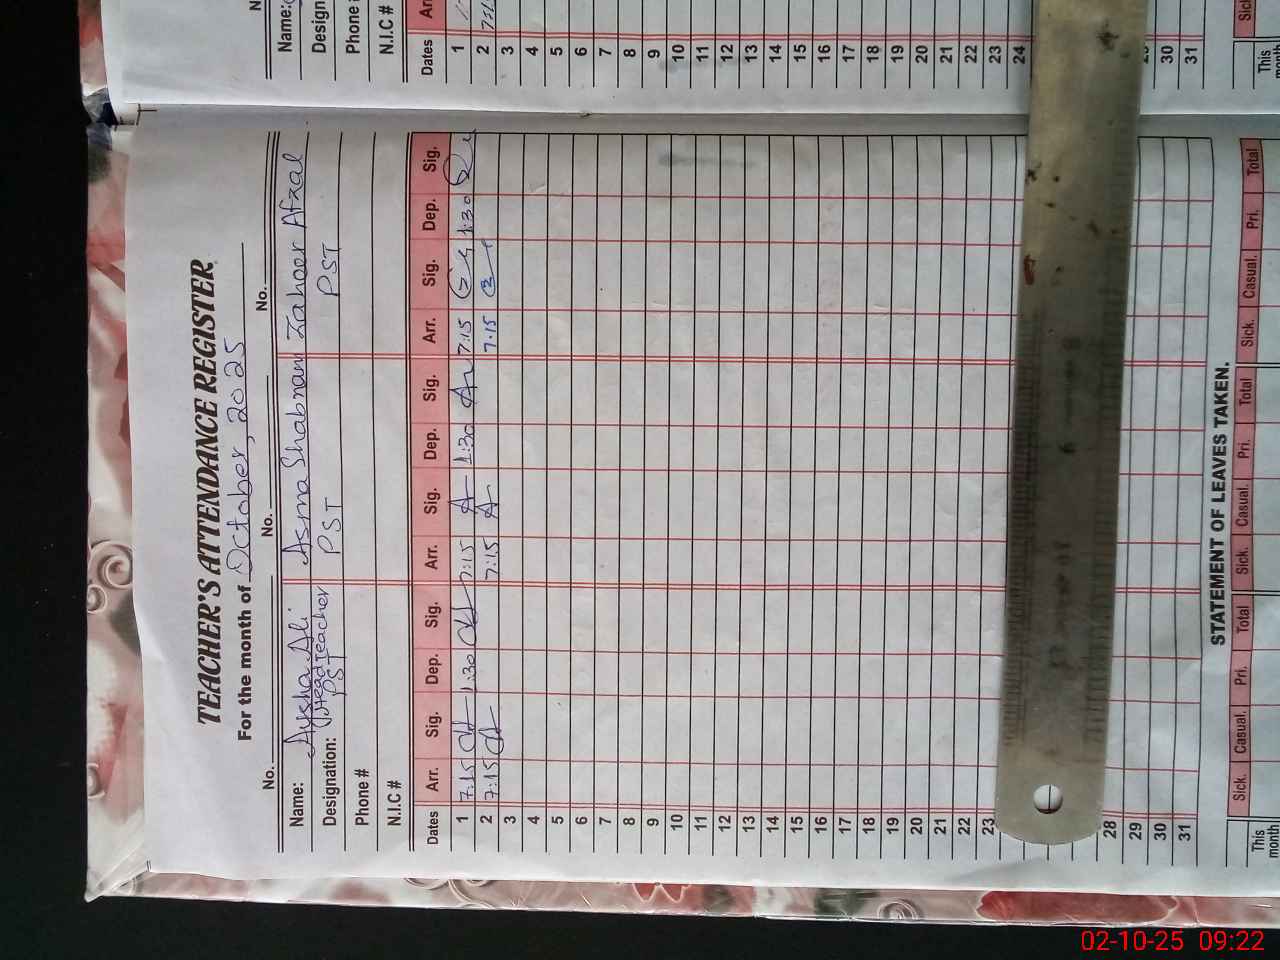 TEACHER'S ATTENDANCE REGISTER
For the month of October, 2025
No. No. No.
Name: Aysha Ali Asma Shabnam Zahoor Afzal
Designation: Headteacher
PST PST PST
Phone #
N.I.C #
Dates Arr. Sig. Dep. Sig. Arr. Sig. Dep. Sig. Arr. Sig. Dep. Sig.
1 7:15 1:30 7:15 1:30 7:15 1:30
2 7:15 7:15 7:15
3
4
5
6
7
8
9
10
11
12
13
14
15
16
17
18
19
20
21
22
23
28
29
30
31
STATEMENT OF LEAVES TAKEN.
Sick. Casual. Pri. Total Sick. Casual. Pri. Total Sick. Casual. Pri. Total
This month
Name:
Phone
N.I.C #
Dates
1
2
3
4
5
6
7
8
9
10
11
12
13
14
15
16
17
18
19
20
21
22
23
24
30
31
This
02-10-25 09:22